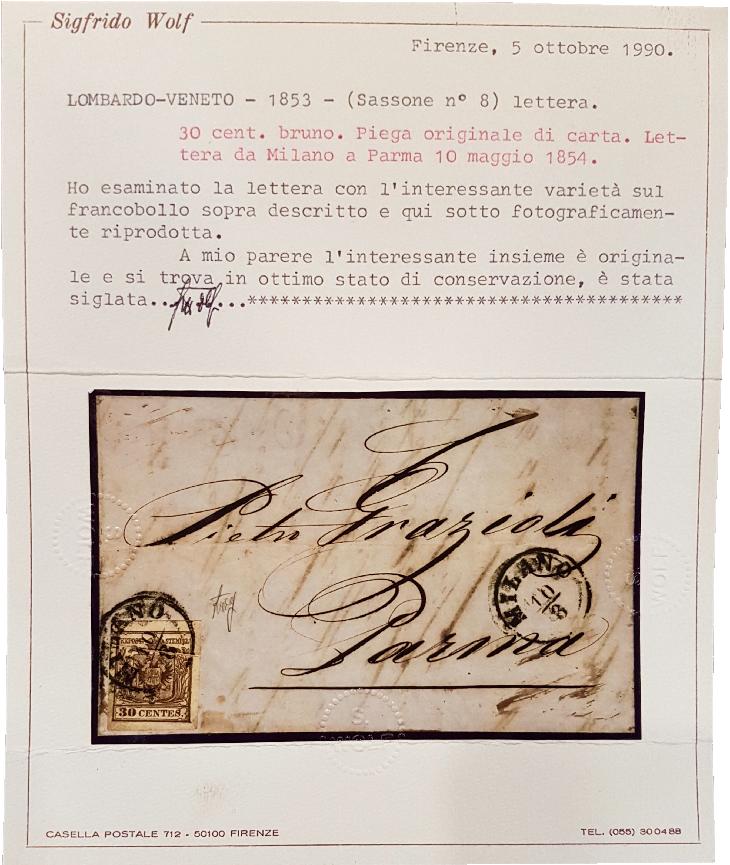 Sigfrido Wolf
Firenze, 5 ottobre 1990.
LOMBARDO-VENETO - 1853 - (Sassone n° 8) lettera.
30 cent. bruno. Piega originale di carta. Let-
tera da Milano a Parma 10 maggio 1854.
Ho esaminato la lettera con l'interessante varietà sul
francobollo sopra descritto e qui sotto fotograficamen-
te riprodotta.
A mio parere l'interessante insieme è origina-
le e si trova in ottimo stato di conservazione, è stata
siglata.. ...****************************************
Pietro Grazioli
MILANO
10/8
Parma
MILANO
30 CENTES.
S.
WOLF
S.
WOLF
S.
WOLF
CASELLA POSTALE 712 - 50100 FIRENZE
TEL. (055) 300488